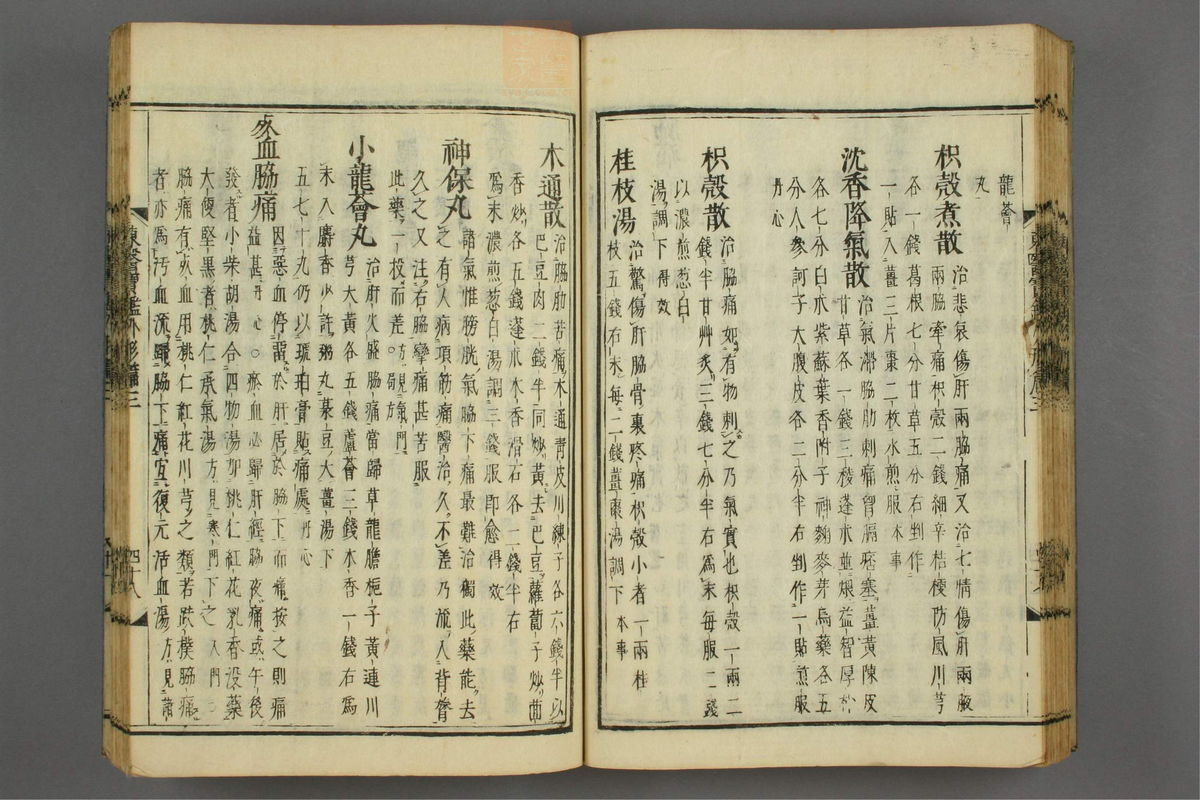 龍薈
丸
枳殼煮散
治悲哀傷肝兩脇痛又治七情傷肝兩脇
兩脇牽痛枳殼二錢細辛桔梗防風川芎
各一錢葛根七分甘草五分右剉作
一貼入薑三片棗二枚水煎服本事
沈香降氣散
治氣滯脇肋刺痛胷膈痞塞薑黃陳皮
甘草各一錢三稜蓬朮並煨益智厚朴
各七分白朮紫蘇葉香附子神麴麥芽烏藥各五
分人參訶子大腹皮各二分半右剉作一貼煎服
丹心
枳殼散
治脇痛如有物刺之乃氣實也枳殼一兩二
錢半甘艸炙三錢七分半右爲末每服二錢
以濃煎葱白
湯調下得效
桂枝湯
治驚傷肝脇骨裏疼痛枳殼小者一兩桂
枝五錢右末每二錢薑棗湯調下本事
木通散
治脇肋苦痛木通靑皮川練子各六錢半以
巴豆肉二錢半同炒黃去巴豆蘿蔔子炒茴
香炒各五錢蓬朮木香滑石各二錢半右
爲末濃煎葱白湯調三錢服卽愈得效
神保丸
諸氣惟膀胱氣脇下痛最難治獨此藥能去
之有人病項筋痛醫治久不差乃流入背膂
久之又注右脇攣痛甚苦服
此藥一投而差方見氣門
小龍薈丸
治肝火盛脇痛當歸草龍膽梔子黃連川
芎大黃各五錢蘆薈三錢木香一錢右爲
末入麝香少許粥丸菉豆大薑湯下
五七十丸仍以琥珀膏貼痛處丹心
死血脇痛
因惡血停留於肝居於脇下而痛按之則痛
益甚丹心○瘀血必歸肝經脇夜痛或午後
發者小柴胡湯合四物湯加桃仁紅花乳香沒藥
大便堅黑者桃仁承氣湯方見寒門下之入門
脇痛有死血用桃仁紅花川芎之類若跌撲脇痛
者亦爲汚血流歸脇下痛宜復元活血湯方見諸
東醫寶鑑外形篇三
四十八